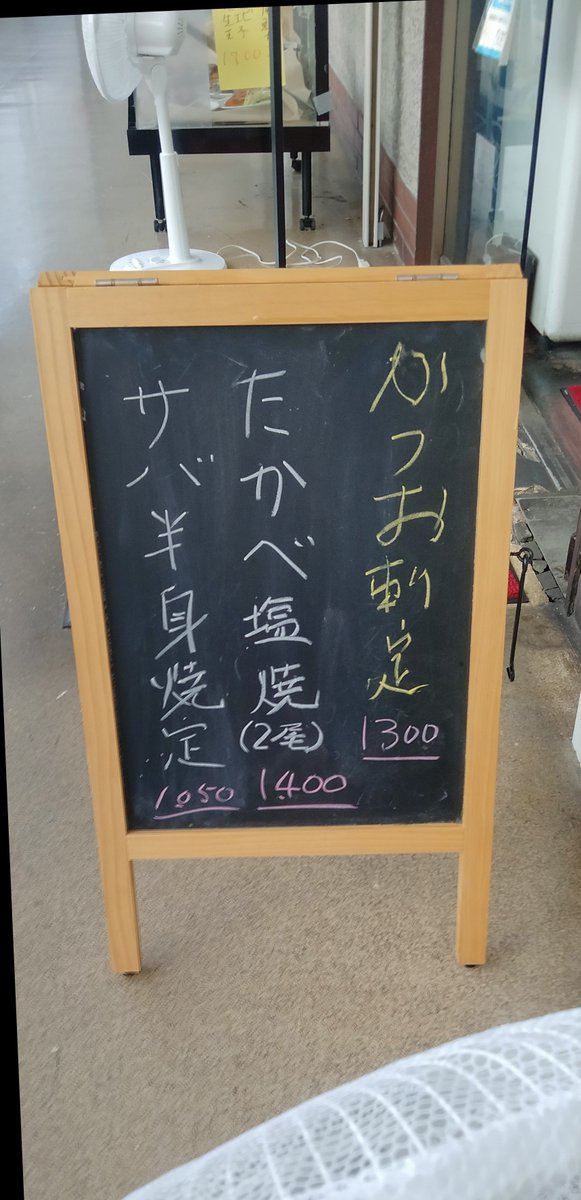 かつお刺定
1300
たかべ塩焼
(2尾)
1400
サバ半身焼定
1050
1700